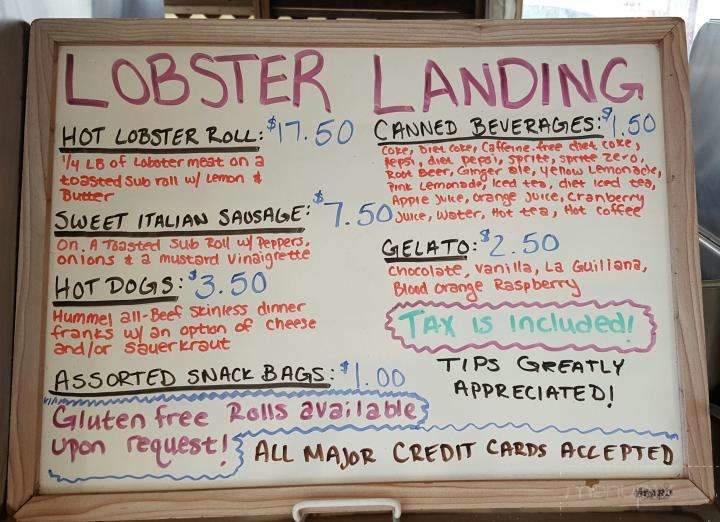 LOBSTER LANDING
HOT LOBSTER ROLL: $17.50
1/4 LB of Lobster meat on a
toasted sub roll w/ Lemon &
Butter
SWEET ITALIAN SAUSAGE: $7.50
On A Toasted Sub Roll w/ Peppers,
onions & a mustard vinaigrette
HOT DOGS: $3.50
Hummel all-Beef Skinless dinner
franks w/ an option of cheese
and/or sauerkraut
ASSORTED SNACK BAGS: $1.00
Gluten free Rolls available
upon request!
CANNED BEVERAGES: $1.50
Coke, Diet Coke, Caffeine-free diet coke,
Pepsi, diet pepsi, sprite, sprite zero,
Root Beer, Ginger ale, yellow Lemonade,
Pink Lemonade, Iced tea, diet iced tea,
Apple Juice, Orange Juice, Cranberry
Juice, Water, Hot tea, Hot coffee
GELATO: $2.50
Chocolate, Vanilla, La Guiliana,
Blood Orange Raspberry
TAX is included!
TIPS GREATLY
APPRECIATED!
ALL MAJOR CREDIT CARDS ACCEPTED